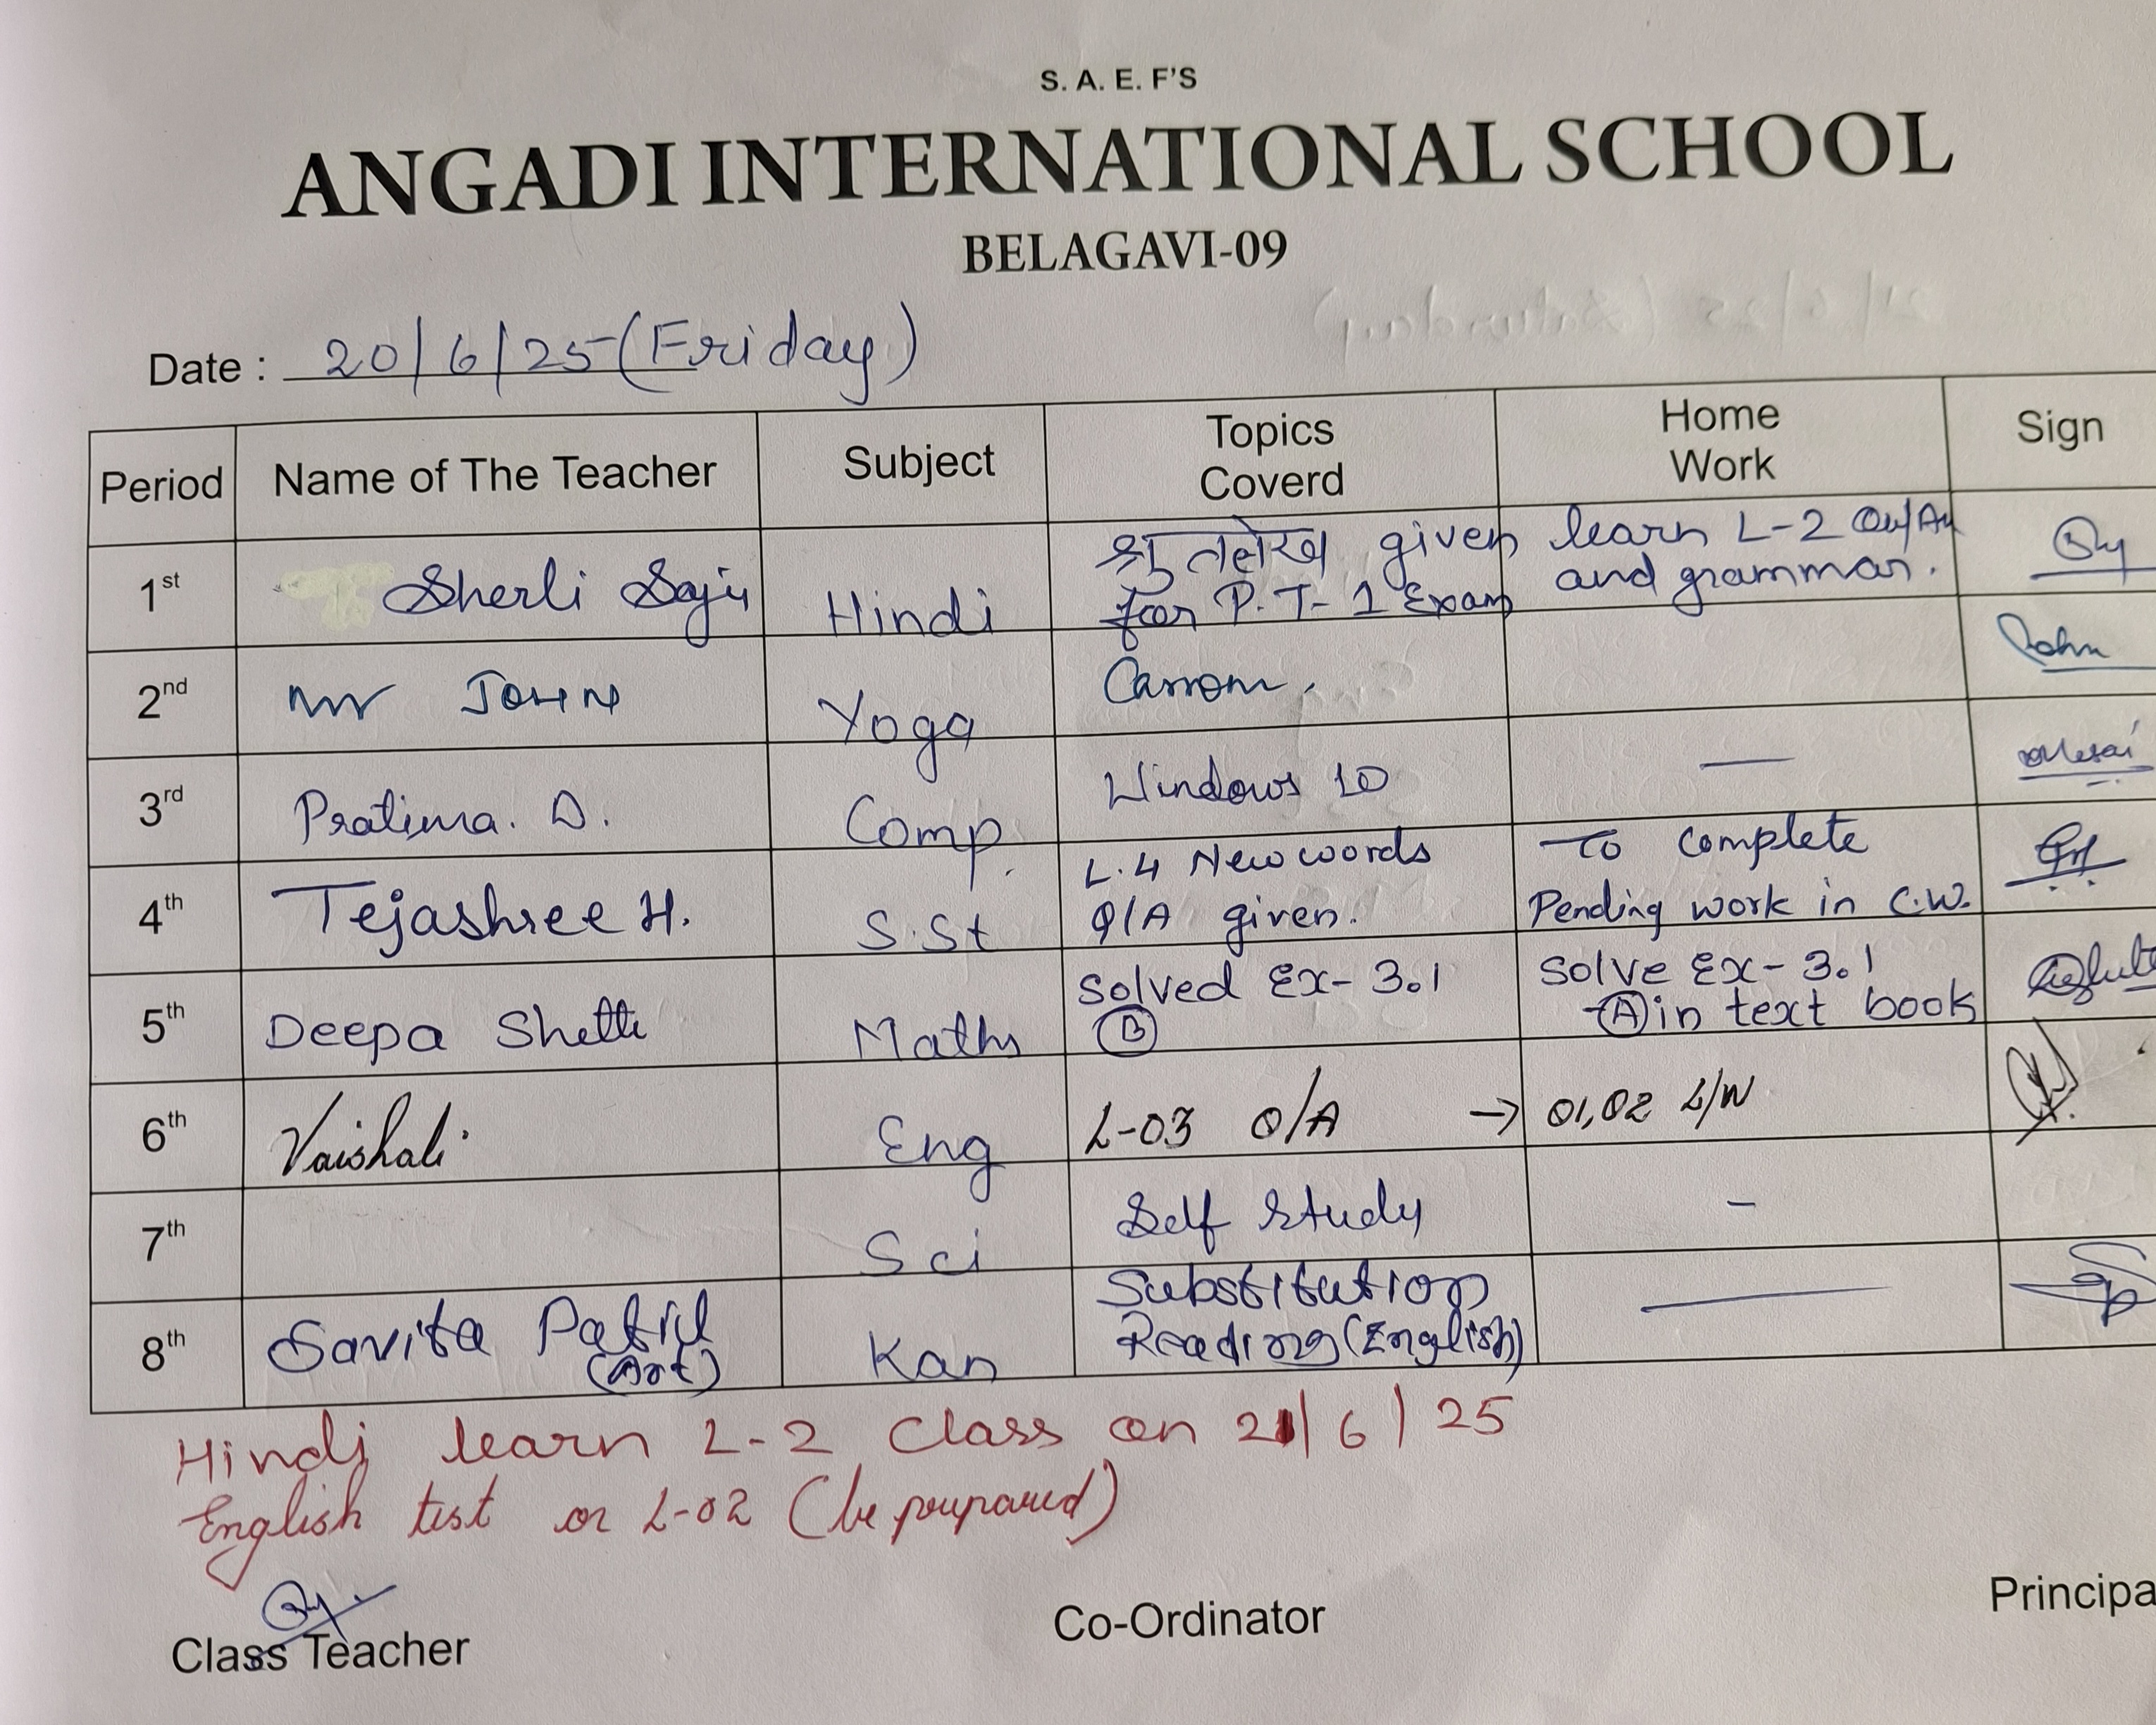 S. A. E. F'S
ANGADI INTERNATIONAL SCHOOL
BELAGAVI-09
Date : 20/6/25 (Friday)
Period Name of The Teacher Subject Topics Coverd Home Work Sign
1st Sherli Saju Hindi श्रुतलेख given learn L-2
for P.T-1 Exam and grammar.
2nd Mr JOHN Yoga Carrom. John
3rd Pratima. D. Comp. Windows 10 —
4th Tejashree H. S.St L.4 New words To complete
Q/A given. Pending work in C.W.
5th Deepa Shetti Maths Solved Ex-3.1 Solve Ex-3.1
B A in text book
6th Vaishali Eng L-03 Q/A → Q1,Q2 L/W
7th Sci Self Study -
8th Savita Patil Kan Substitution —
(Art) Reading (English)
Hindi learn L-2 Class on 21/6/25
English test on L-02 (be prepared)
Class Teacher Co-Ordinator Principa